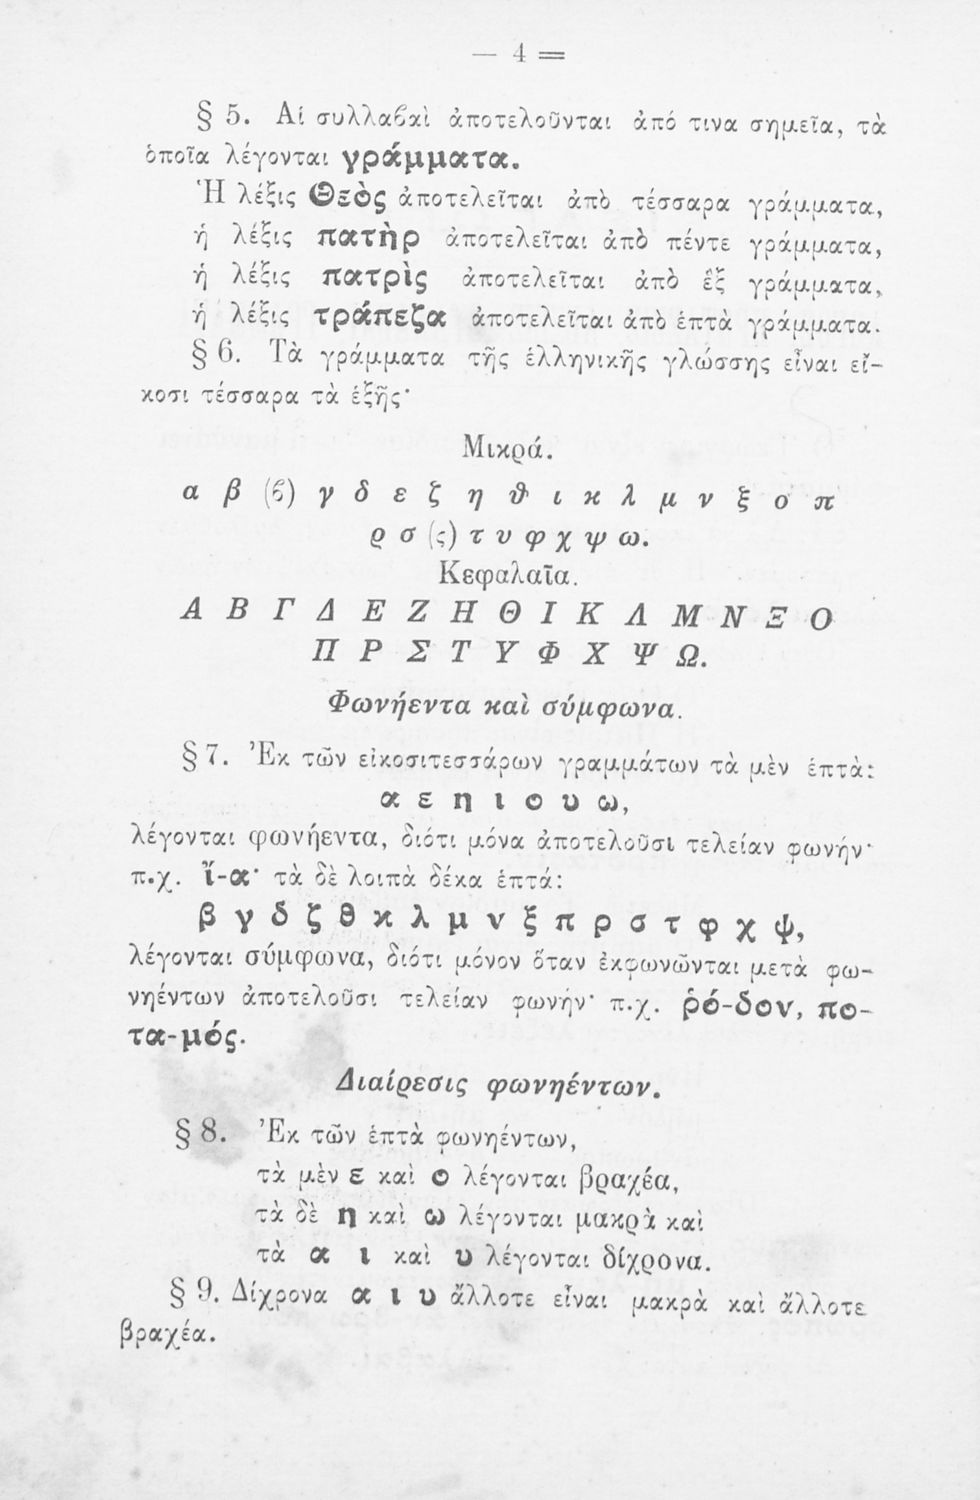 — 4 =
§ 5. Αἱ συλλαϐαὶ ἀποτελοῦνται ἀπό τινα σημεῖα, τὰ
ὁποῖα λέγονται γράμματα.
Ἡ λέξις Θεὸς ἀποτελεῖται ἀπὸ τέσσαρα γράμματα,
ἡ λέξις πατὴρ ἀποτελεῖται ἀπὸ πέντε γράμματα,
ἡ λέξις πατρὶς ἀποτελεῖται ἀπὸ ἓξ γράμματα,
ἡ λέξις τράπεζα ἀποτελεῖται ἀπὸ ἑπτὰ γράμματα.
§ 6. Τὰ γράμματα τῆς ἑλληνικῆς γλώσσης εἶναι εἴ-
κοσι τέσσαρα τὰ ἑξῆς·
Μικρά.
α β (ϐ) γ δ ε ζ η ϑ ι κ λ μ ν ξ ο π
ρ σ (ς) τ υ φ χ ψ ω.
Κεφαλαῖα.
Α Β Γ Δ Ε Ζ Η Θ Ι Κ Λ Μ Ν Ξ Ο
Π Ρ Σ Τ Υ Φ Χ Ψ Ω.
Φωνήεντα καὶ σύμφωνα.
§ 7. Ἐκ τῶν εἰκοσιτεσσάρων γραμμάτων τὰ μὲν ἑπτὰ:
α ε η ι ο υ ω,
λέγονται φωνήεντα, διότι μόνα ἀποτελοῦσι τελείαν φωνήν·
π.χ. ἴ-α· τὰ δὲ λοιπὰ δέκα ἑπτά:
β γ δ ζ θ κ λ μ ν ξ π ρ σ τ φ χ ψ,
λέγονται σύμφωνα, διότι μόνον ὅταν ἐκφωνῶνται μετὰ φω-
νηέντων ἀποτελοῦσι τελείαν φωνήν· π.χ. ῥό-δον, πο-
τα-μός.
Διαίρεσις φωνηέντων.
§ 8. Ἐκ τῶν ἑπτὰ φωνηέντων,
τὰ μὲν ε καὶ ο λέγονται βραχέα,
τὰ δὲ η καὶ ω λέγονται μακρὰ καὶ
τὰ α ι καὶ υ λέγονται δίχρονα.
§ 9. Δίχρονα α ι υ ἄλλοτε εἶναι μακρὰ καὶ ἄλλοτε
βραχέα.